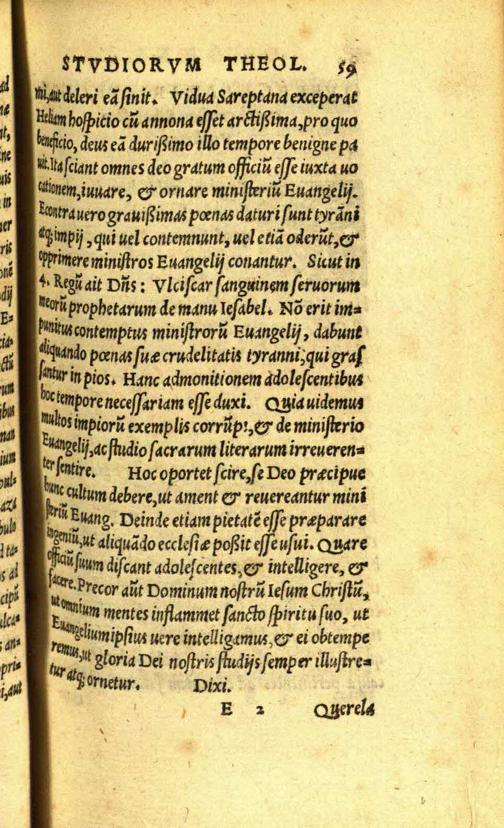 STVDIORVM THEOL. 59
mi, aut deleri eã sinit. Vidua Sareptana exceperat
Heliam hospicio cũ annona esset arctißima, pro quo
beneficio, deus eã durißimo illo tempore benigne pa
uit. Ita sciant omnes deo gratum officiũ esse iuxta uo
cationem, iuuare, & ornare ministeriũ Euangelij.
Econtra uero grauißimas pœnas daturi sunt tyrãni
atq; impij, qui uel contemnunt, uel etiã oderũt, &
opprimere ministros Euangelij conantur. Sicut in
4. Regũ ait Dñs: Vlciscar sanguinem seruorum
meorũ prophetarum de manu Iesabel. Nõ erit im=
punitus contemptus ministrorũ Euangelij, dabunt
aliquando pœnas suæ crudelitatis tyranni, qui gras
santur in pios. Hanc admonitionem adolescentibus
hoc tempore necessariam esse duxi. Quia uidemus
multos impiorũ exemplis corrũpi, & de ministerio
Euangelij, ac studio sacrarum literarum irreueren=
ter sentire. Hoc oportet scire, se Deo præcipue
hunc cultum debere, ut ament & reuereantur mini
steriũ Euang. Deinde etiam pietatẽ esse præparare
ingeniũ, ut aliquãdo ecclesiæ poßit esse usui. Quare
officiũ suum discant adolescentes, & intelligere, &
facere. Precor aũt Dominum nostrũ Iesum Christũ,
ut omnium mentes inflammet sancto spiritu suo, ut
Euangelium ipsius uere intelligamus, & ei obtempe
remus, ut gloria Dei nostris studijs semper illustre=
tur atq; ornetur. Dixi.
E 2 Querela